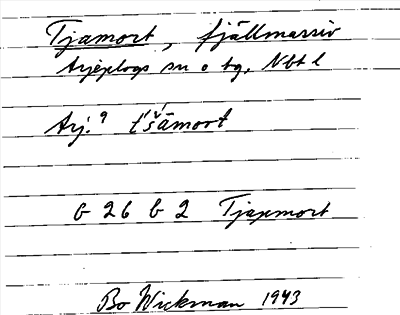 Tjamort, fjällmassiv
Arjeplogs sn o tg, Nbt l
Arj.⁹ t́š́āmoot
6 26 b 2 Tjapmort
Bo Wickman 1943